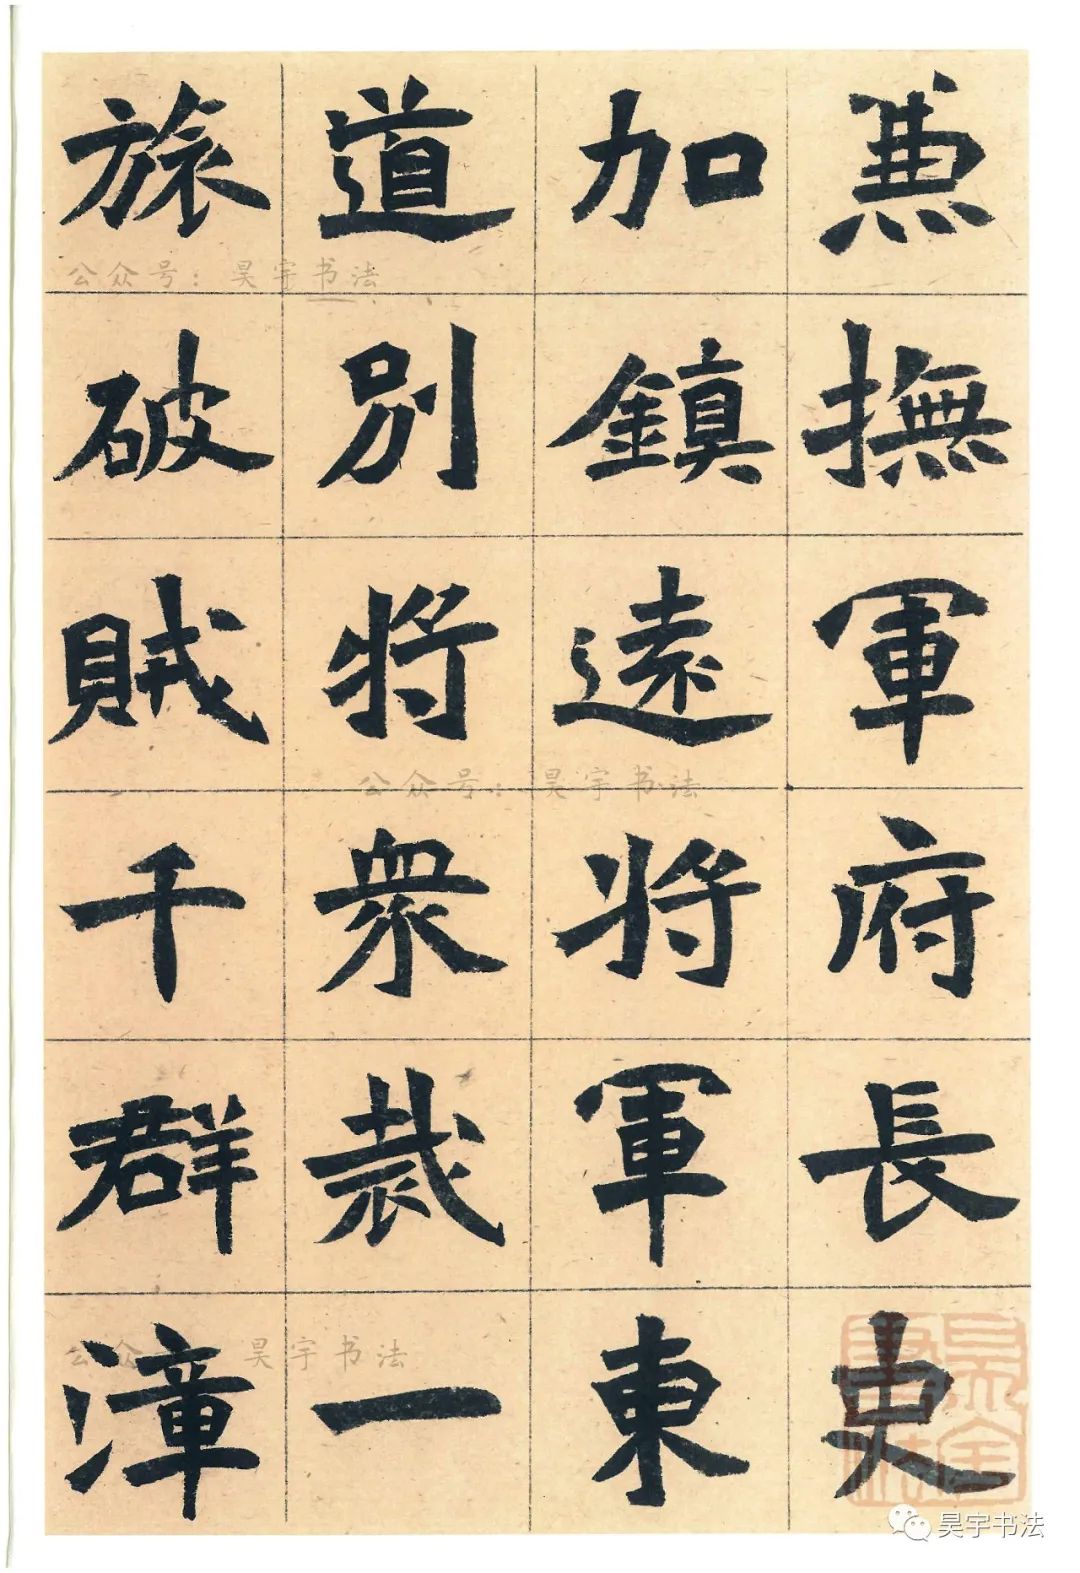 兼撫軍府長史
加鎮遠將軍東
道別將衆裁一
旅破賊千群漳
公众号：昊宇书法
公众号：昊宇书法
公众 昊宇书法
昊宇书法